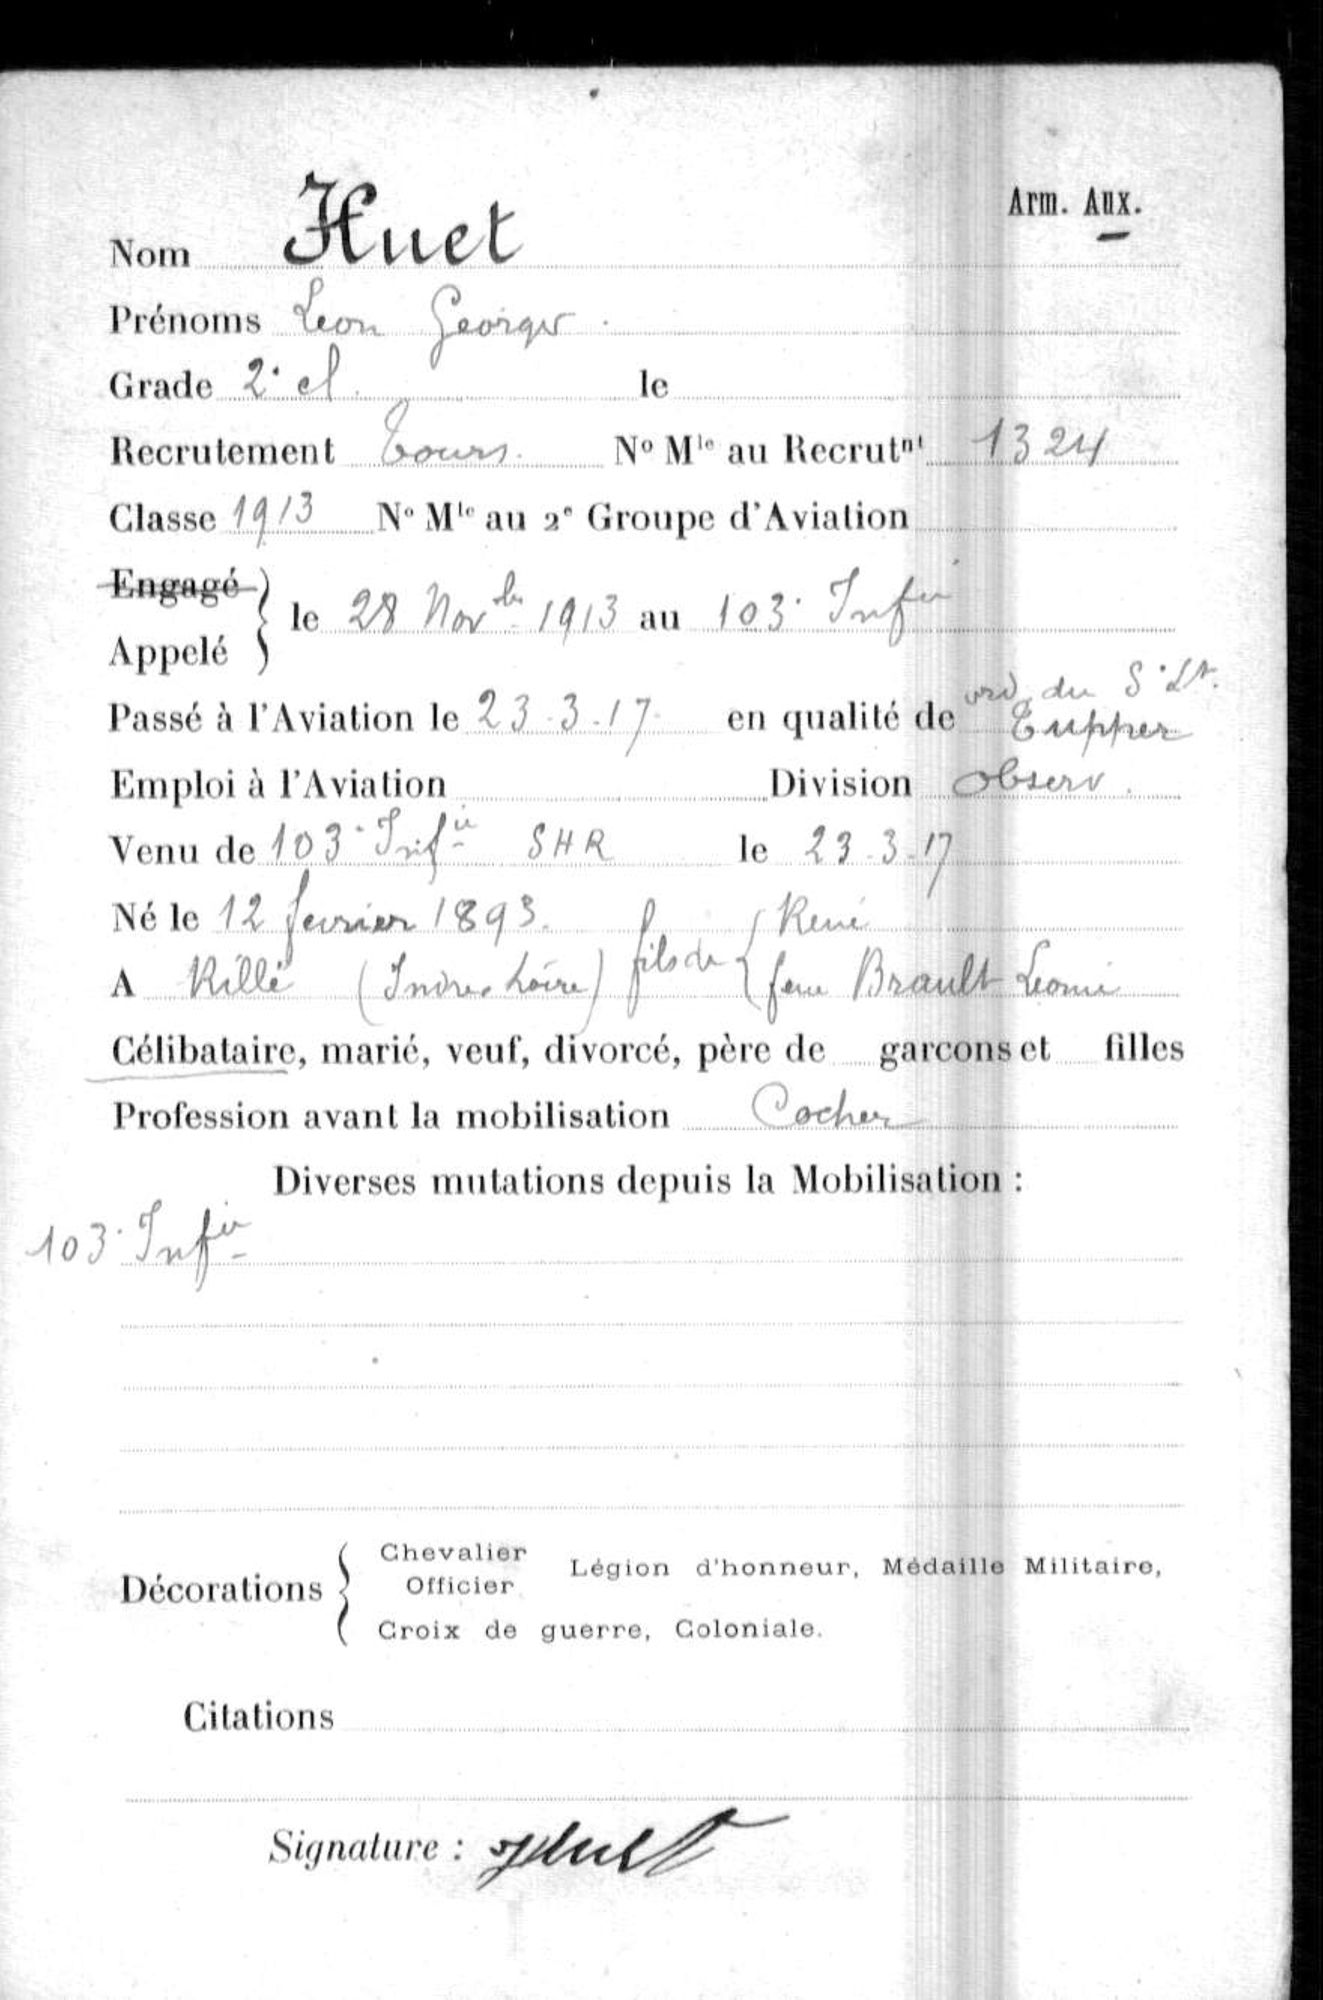 Arm. Aux.
Nom Huet
Prénoms Leon Georges
Grade 2e cl. le
Recrutement Tours. No Mle au Recrutnt 1324
Classe 1913 No Mle au 2e Groupe d'Aviation
Engagé
le 28 Novbre 1913 au 103e Infie
Appelé
ord. du S. Lt.
Passé à l'Aviation le 23.3.17 en qualité de Tupper
Emploi à l'Aviation Division observ.
Venu de 103e Infie SHR le 23.3.17
Né le 12 fevrier 1893. fils de René
A Rillé (Indre Loire) feue Brault Leonie
Célibataire, marié, veuf, divorcé, père de garcons et filles
Profession avant la mobilisation Cocher
Diverses mutations depuis la Mobilisation :
103e Infie
Chevalier
Officier Légion d'honneur, Médaille Militaire,
Décorations
Croix de guerre, Coloniale.
Citations
Signature : Huet